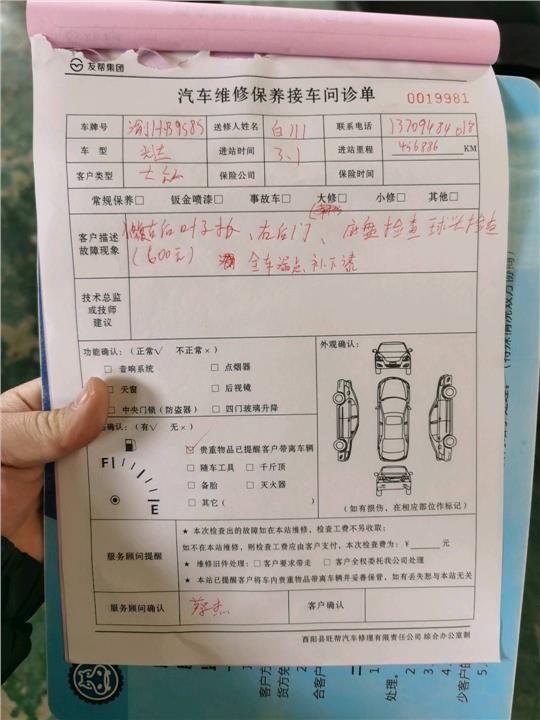 友帮集团
汽车维修保养接车问诊单 0019981
车牌号 渝HB9585 送修人姓名 白川 联系电话 13709484018
车 型 进站时间 3、1 进站里程 456886 KM
客户类型 保险公司 保险时间
常规保养□ 钣金喷漆□ 事故车□ 大修□ 小修□ 其他□
客户描述
故障现象
右后叶子板、右后门、底盘检查 球头检查
(600元) 全车端点补下漆
技术总监
或技师
建议
功能确认:(正常√ 不正常×) 外观确认:
□ 音响系统 □ 点烟器
□ 天窗 □ 后视镜
□ 中央门锁(防盗器) □ 四门玻璃升降
确认:(有√ 无×)
□ 贵重物品已提醒客户带离车辆
□ 随车工具 □ 千斤顶
□ 备胎 □ 灭火器
□ 其它( )
F
E
(如有损伤,在相应部位作标记)
服务顾问提醒
★ 本次检查出的故障如在本站维修,检查工费不另收取;
如不在本站维修,则检查工费应由客户支付,本次检查费为:¥ 元
★ 维修旧件处理:□ 客户要求带走 □ 客户全权委托我公司处理
★ 本站已提醒客户将车内贵重物品带离车辆并妥善保管,如有丢失恕与本站无关
服务顾问确认 蔡杰 客户确认
酉阳县旺帮汽车修理有限责任公司 综合办公室制